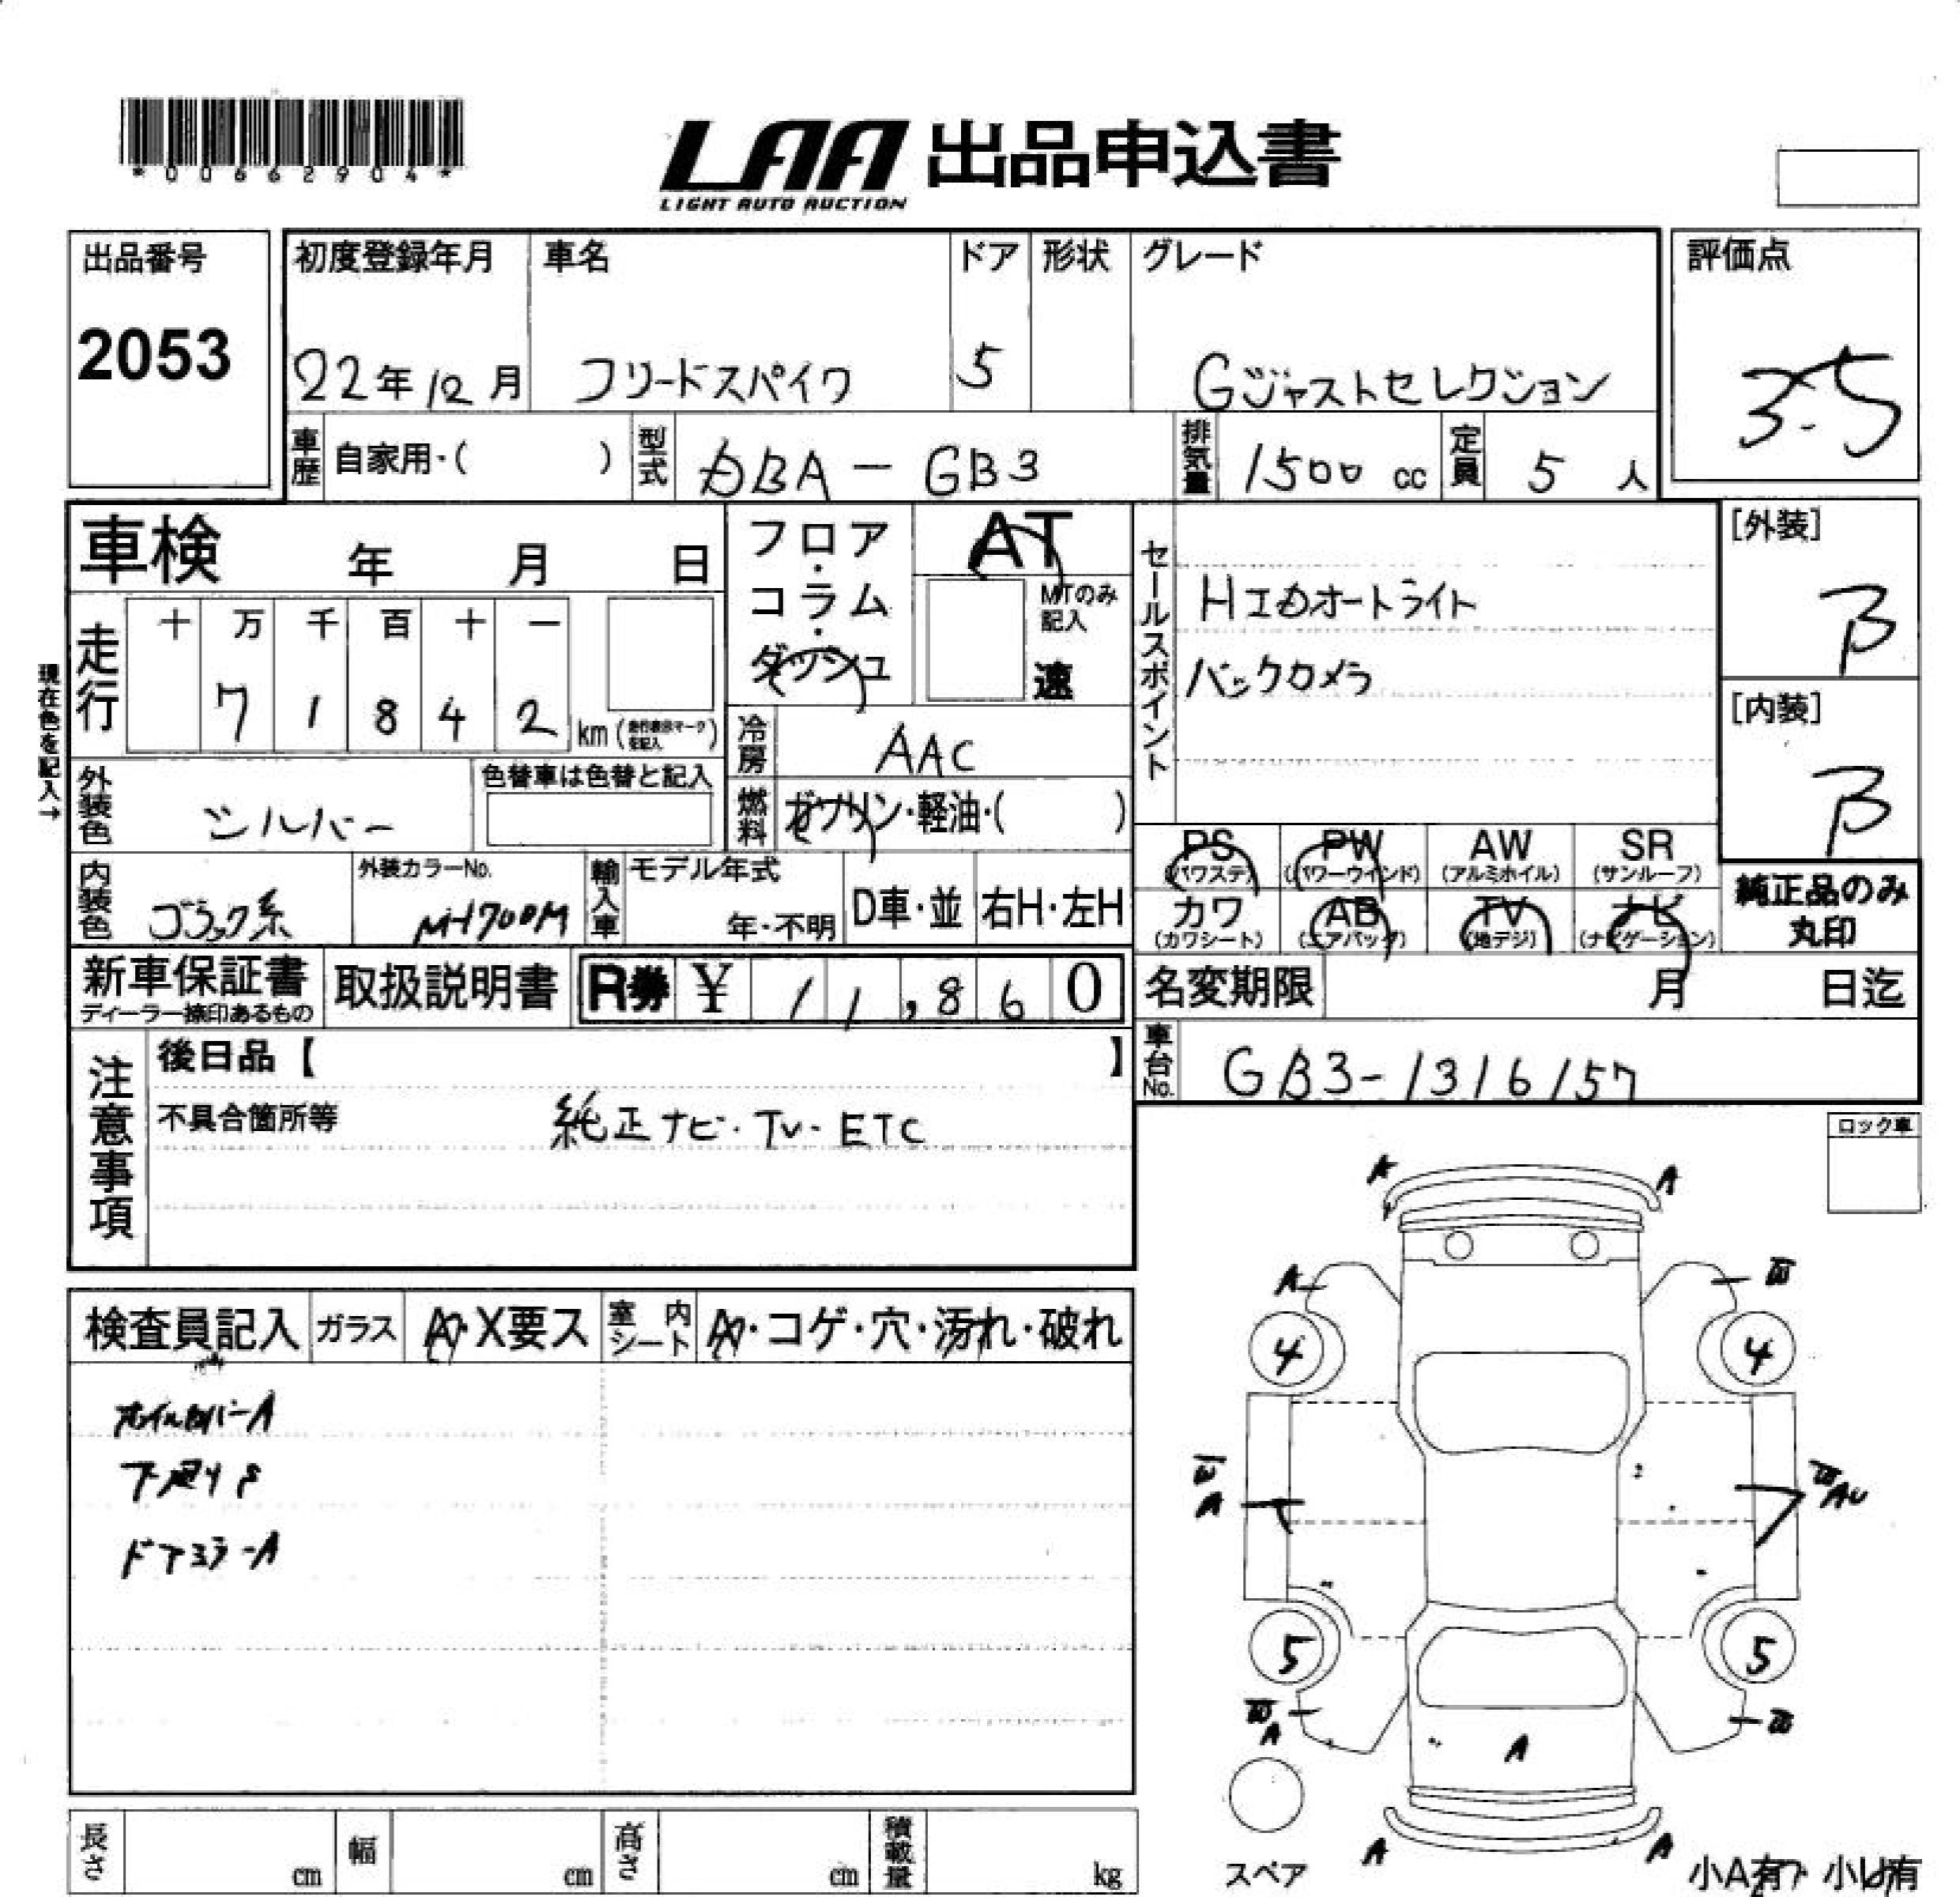 *00662904*
LAA 出品申込書
LIGHT AUTO AUCTION
出品番号
2053
初度登録年月 車名 ドア 形状 グレード
22年12月 フリードスパイク 5 Gジャストセレクション
評価点
3.5
車歴 自家用・( ) 型式 DBA-GB3 排気量 1500 cc 定員 5 人
車検 年 月 日
フロア・コラム・ダッシュ
AT
MTのみ記入
速
セールスポイント
HIDオートライト
バックカメラ
[外装]
B
[内装]
B
現在色を記入→
走行 十 万 千 百 十 一
7 1 8 4 2 km
冷房 AAC
外装色 シルバー 色替車は色替と記入
燃料 ガソリン・軽油・( )
内装色 ブラック系 外装カラーNo. NH700M
輸入車 モデル年式 年・不明 D車・並 右H・左H
PS (パワステ) PW (パワーウインド) AW (アルミホイル) SR (サンルーフ)
カワ (カワシート) AB (エアバッグ) TV (地デジ) ナビ (ナビゲーション)
純正品のみ丸印
新車保証書 ディーラー捺印あるもの 取扱説明書 R券 ¥ 11,860
名変期限 月 日迄
車台No. GB3-1316157
注意事項
後日品【 】
不具合箇所等 純正ナビ・TV・ETC
ロック車
検査員記入 ガラス A・X要ス 室内シート A・コゲ・穴・汚れ・破れ
ホイルカバーA
下廻りS
ドアミラーA
A A
A W
4 4
W A
W AU
5 5
W A W
A
A A
スペア
小A有 小U有
長さ cm 幅 cm 高さ cm 積載量 kg